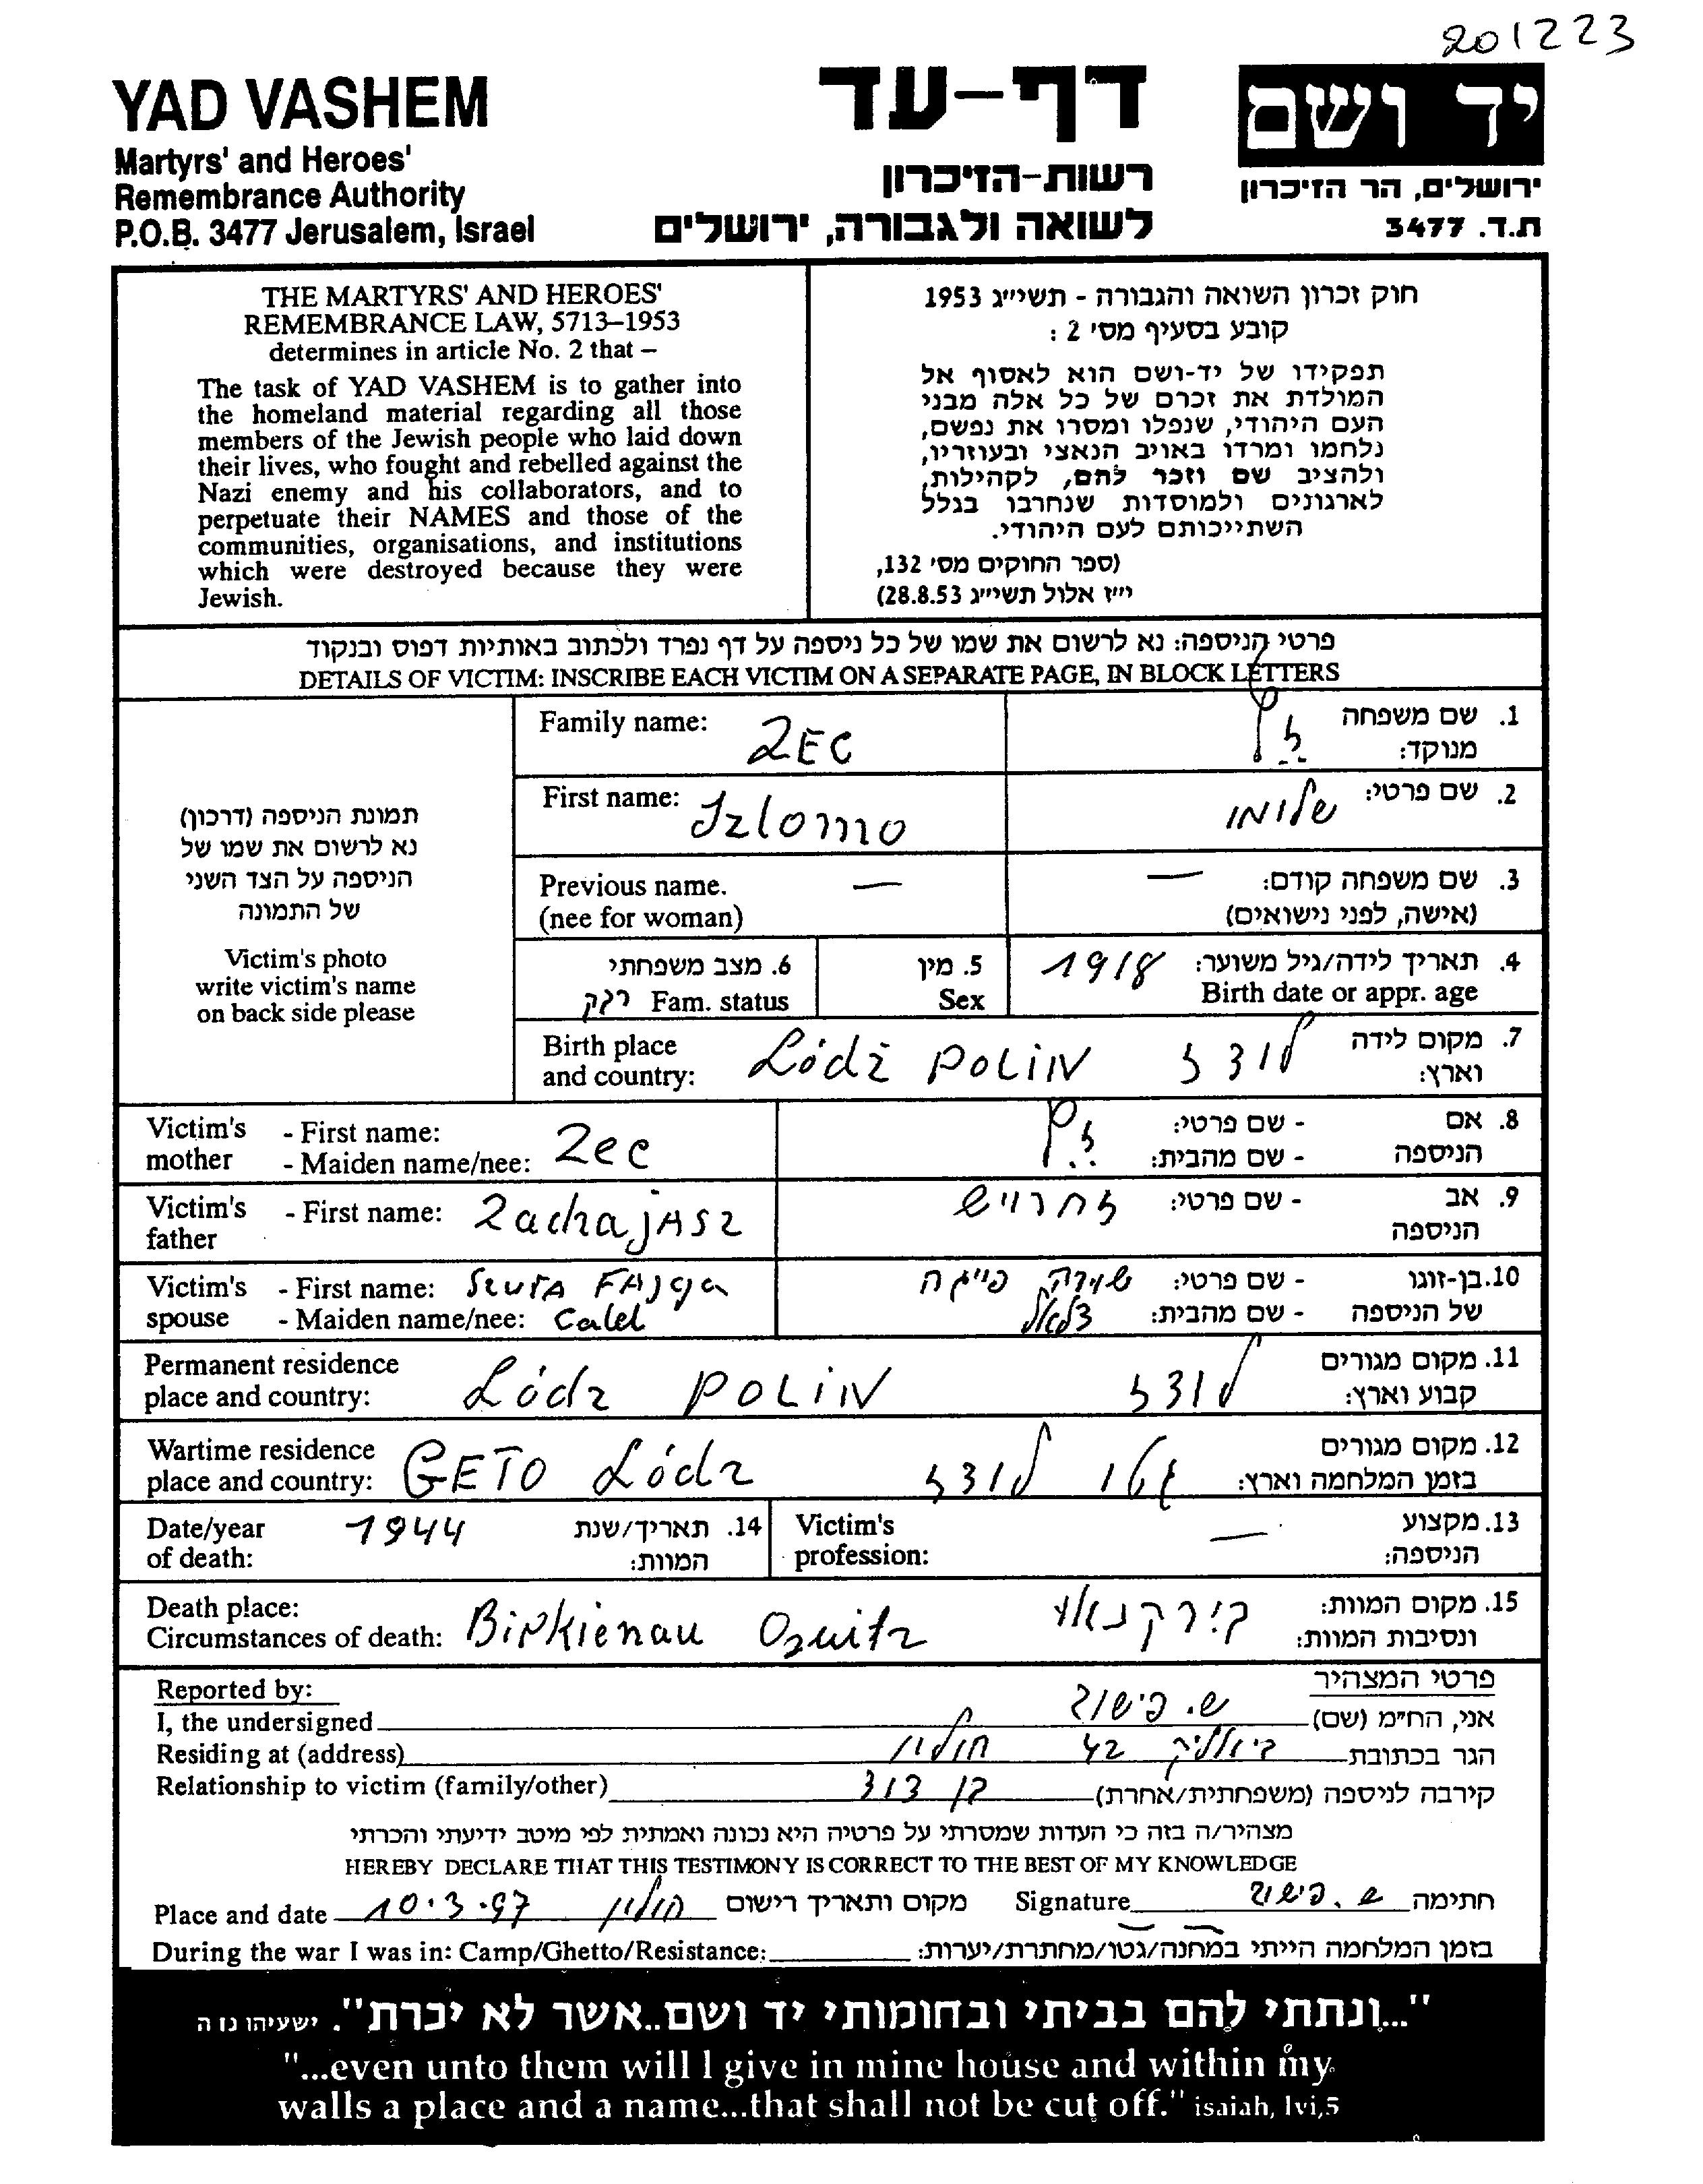 201223
YAD VASHEM
Martyrs' and Heroes'
Remembrance Authority
P.O.B. 3477 Jerusalem, Israel
דף-עד
רשות-הזיכרון
לשואה ולגבורה, ירושלים
יד ושם
ירושלים, הר הזיכרון
ת.ד. 3477
THE MARTYRS' AND HEROES'
REMEMBRANCE LAW, 5713–1953
determines in article No. 2 that –
The task of YAD VASHEM is to gather into
the homeland material regarding all those
members of the Jewish people who laid down
their lives, who fought and rebelled against the
Nazi enemy and his collaborators, and to
perpetuate their NAMES and those of the
communities, organisations, and institutions
which were destroyed because they were
Jewish.
חוק זכרון השואה והגבורה - תשי״ג 1953
קובע בסעיף מס׳ 2 :
תפקידו של יד-ושם הוא לאסוף אל
המולדת את זכרם של כל אלה מבני
העם היהודי, שנפלו ומסרו את נפשם,
נלחמו ומרדו באויב הנאצי ובעוזריו,
ולהציב שם וזכר להם, לקהילות,
לארגונים ולמוסדות שנחרבו בגלל
השתייכותם לעם היהודי.
(ספר החוקים מס׳ 132,
י״ז אלול תשי״ג 28.8.53)
פרטי הניספה: נא לרשום את שמו של כל ניספה על דף נפרד ולכתוב באותיות דפוס ובנקוד
DETAILS OF VICTIM: INSCRIBE EACH VICTIM ON A SEPARATE PAGE, IN BLOCK LETTERS
תמונת הניספה (דרכון)
נא לרשום את שמו של
הניספה על הצד השני
של התמונה
Victim's photo
write victim's name
on back side please
Family name: ZEC
1. שם משפחה
מנוקד: זץ
First name: Szlomo
2. שם פרטי: שלומו
Previous name. —
(nee for woman)
3. שם משפחה קודם: —
(אישה, לפני נישואים)
6. מצב משפחתי
Fam. status
5. מין
Sex
4. תאריך לידה/גיל משוער: 1918
Birth date or appr. age
Birth place
and country: Łódź POLIN
7. מקום לידה
וארץ: לודז
Victim's mother - First name:
- Maiden name/nee: Zec
8. אם הניספה - שם פרטי:
- שם מהבית: זץ
Victim's father - First name: ZachajASz
9. אב הניספה - שם פרטי: זחרויש
Victim's spouse - First name: SzuRA FAJga
- Maiden name/nee: Calel
10. בן-זוגו של הניספה - שם פרטי: שורה פייגה
- שם מהבית: צלאל
Permanent residence
place and country: Łódz POLIN
11. מקום מגורים
קבוע וארץ: לודז
Wartime residence
place and country: GETO Łódz
12. מקום מגורים
בזמן המלחמה וארץ: גטו לודז
Date/year
of death: 1944
14. תאריך/שנת
המוות:
Victim's
profession:
13. מקצוע
הניספה: —
Death place:
Circumstances of death: Birkienau Oszwitz
15. מקום המוות:
ונסיבות המוות: בירקנאו
Reported by:
פרטי המצהיר
I, the undersigned
אני, הח״מ (שם) ש. פישוב
Residing at (address)
הגר בכתובת ביאליק 42 חולון
Relationship to victim (family/other)
קירבה לניספה (משפחתית/אחרת) בן דוד
מצהיר/ה בזה כי העדות שמסרתי על פרטיה היא נכונה ואמתית לפי מיטב ידיעתי והכרתי
HEREBY DECLARE THAT THIS TESTIMONY IS CORRECT TO THE BEST OF MY KNOWLEDGE
Place and date 10.3.97 חולון מקום ותאריך רישום
Signature ש. פישוב חתימה
During the war I was in: Camp/Ghetto/Resistance:
בזמן המלחמה הייתי במחנה/גטו/מחתרת/יערות:
"...ונתתי להם בביתי ובחומותי יד ושם..אשר לא יכרת". ישעיהו נו ה
"...even unto them will I give in mine house and within my
walls a place and a name...that shall not be cut off." isaiah, lvi,5